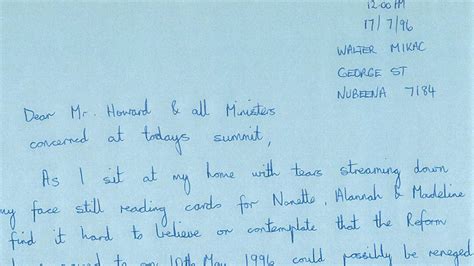 12:00 PM
17/7/96
WALTER MIKAC
GEORGE ST
NUBEENA 7184
Dear Mr. Howard & all Ministers
concerned at todays summit,
As I sit at my home with tears streaming down
my face still reading cards for Nanette, Alannah & Madeline
find it hard to believe or contemplate that the Reform
on 10th May 1996 could possibly be reneged